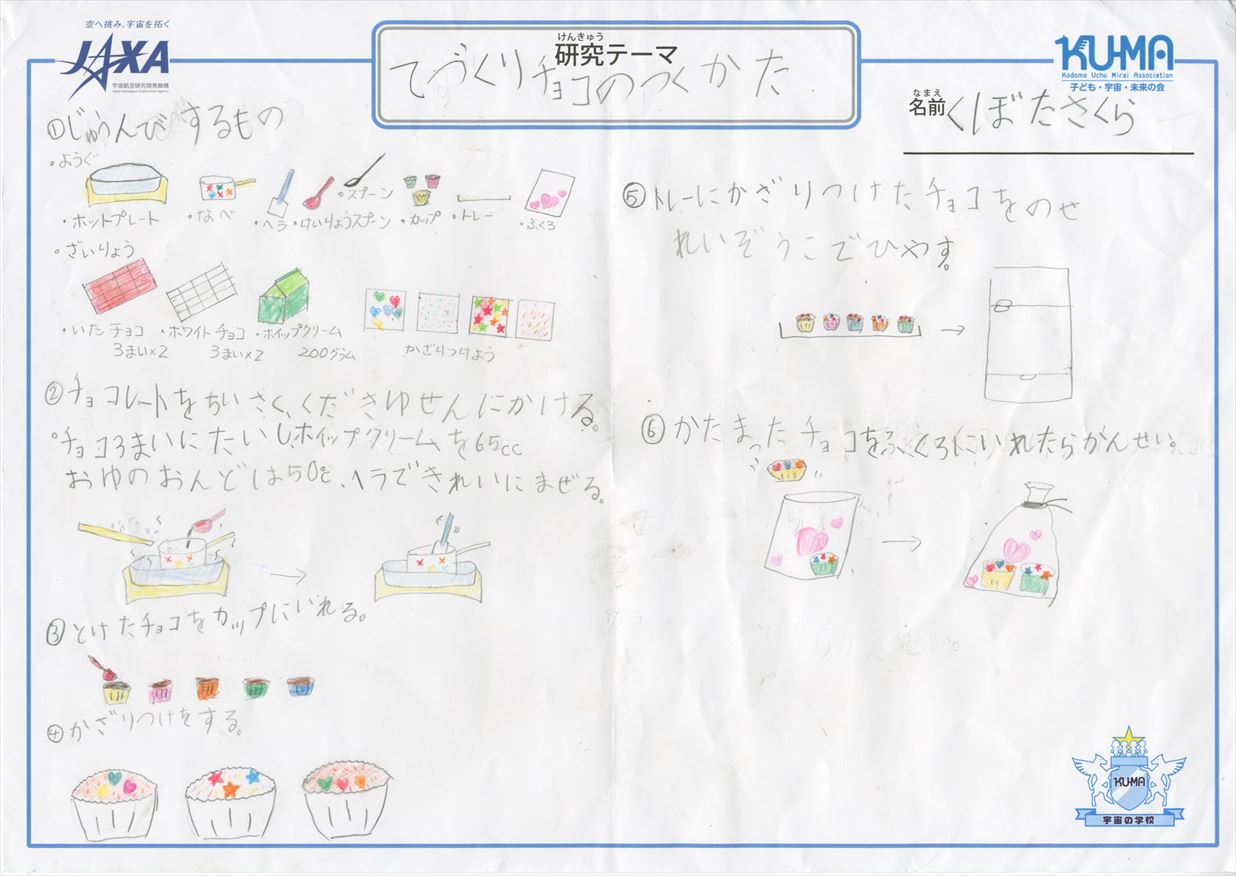 空へ挑み、宇宙を拓く
JAXA
宇宙航空研究開発機構
Japan Aerospace Exploration Agency
けんきゅう
研究テーマ
てづくりチョコのつくかた
KU-MA
Kodomo Uchu Mirai Association
子ども・宇宙・未来の会
なまえ
名前 くぼたさくら
①じゅんびするもの
・ようぐ
・ホットプレート ・なべ ・ヘラ ・けいりょうスプーン ・スプーン ・カップ ・トレー ・ふくろ
・ざいりょう
・いたチョコ ・ホワイトチョコ ・ホイップクリーム かざりつけよう
3まい×2 3まい×2 200グラム
②チョコレートをちいさく、くだきゆせんにかける。
・チョコ3まいにたいしホイップクリームを65cc
おゆのおんどは50℃、ヘラできれいにまぜる。
③とけたチョコをカップにいれる。
④かざりつけをする。
⑤トレーにかざりつけたチョコをのせ
れいぞうこでひやす。
⑥かたまったチョコをふくろにいれたらかんせい。
らかんせい。
KU-MA
宇宙の学校